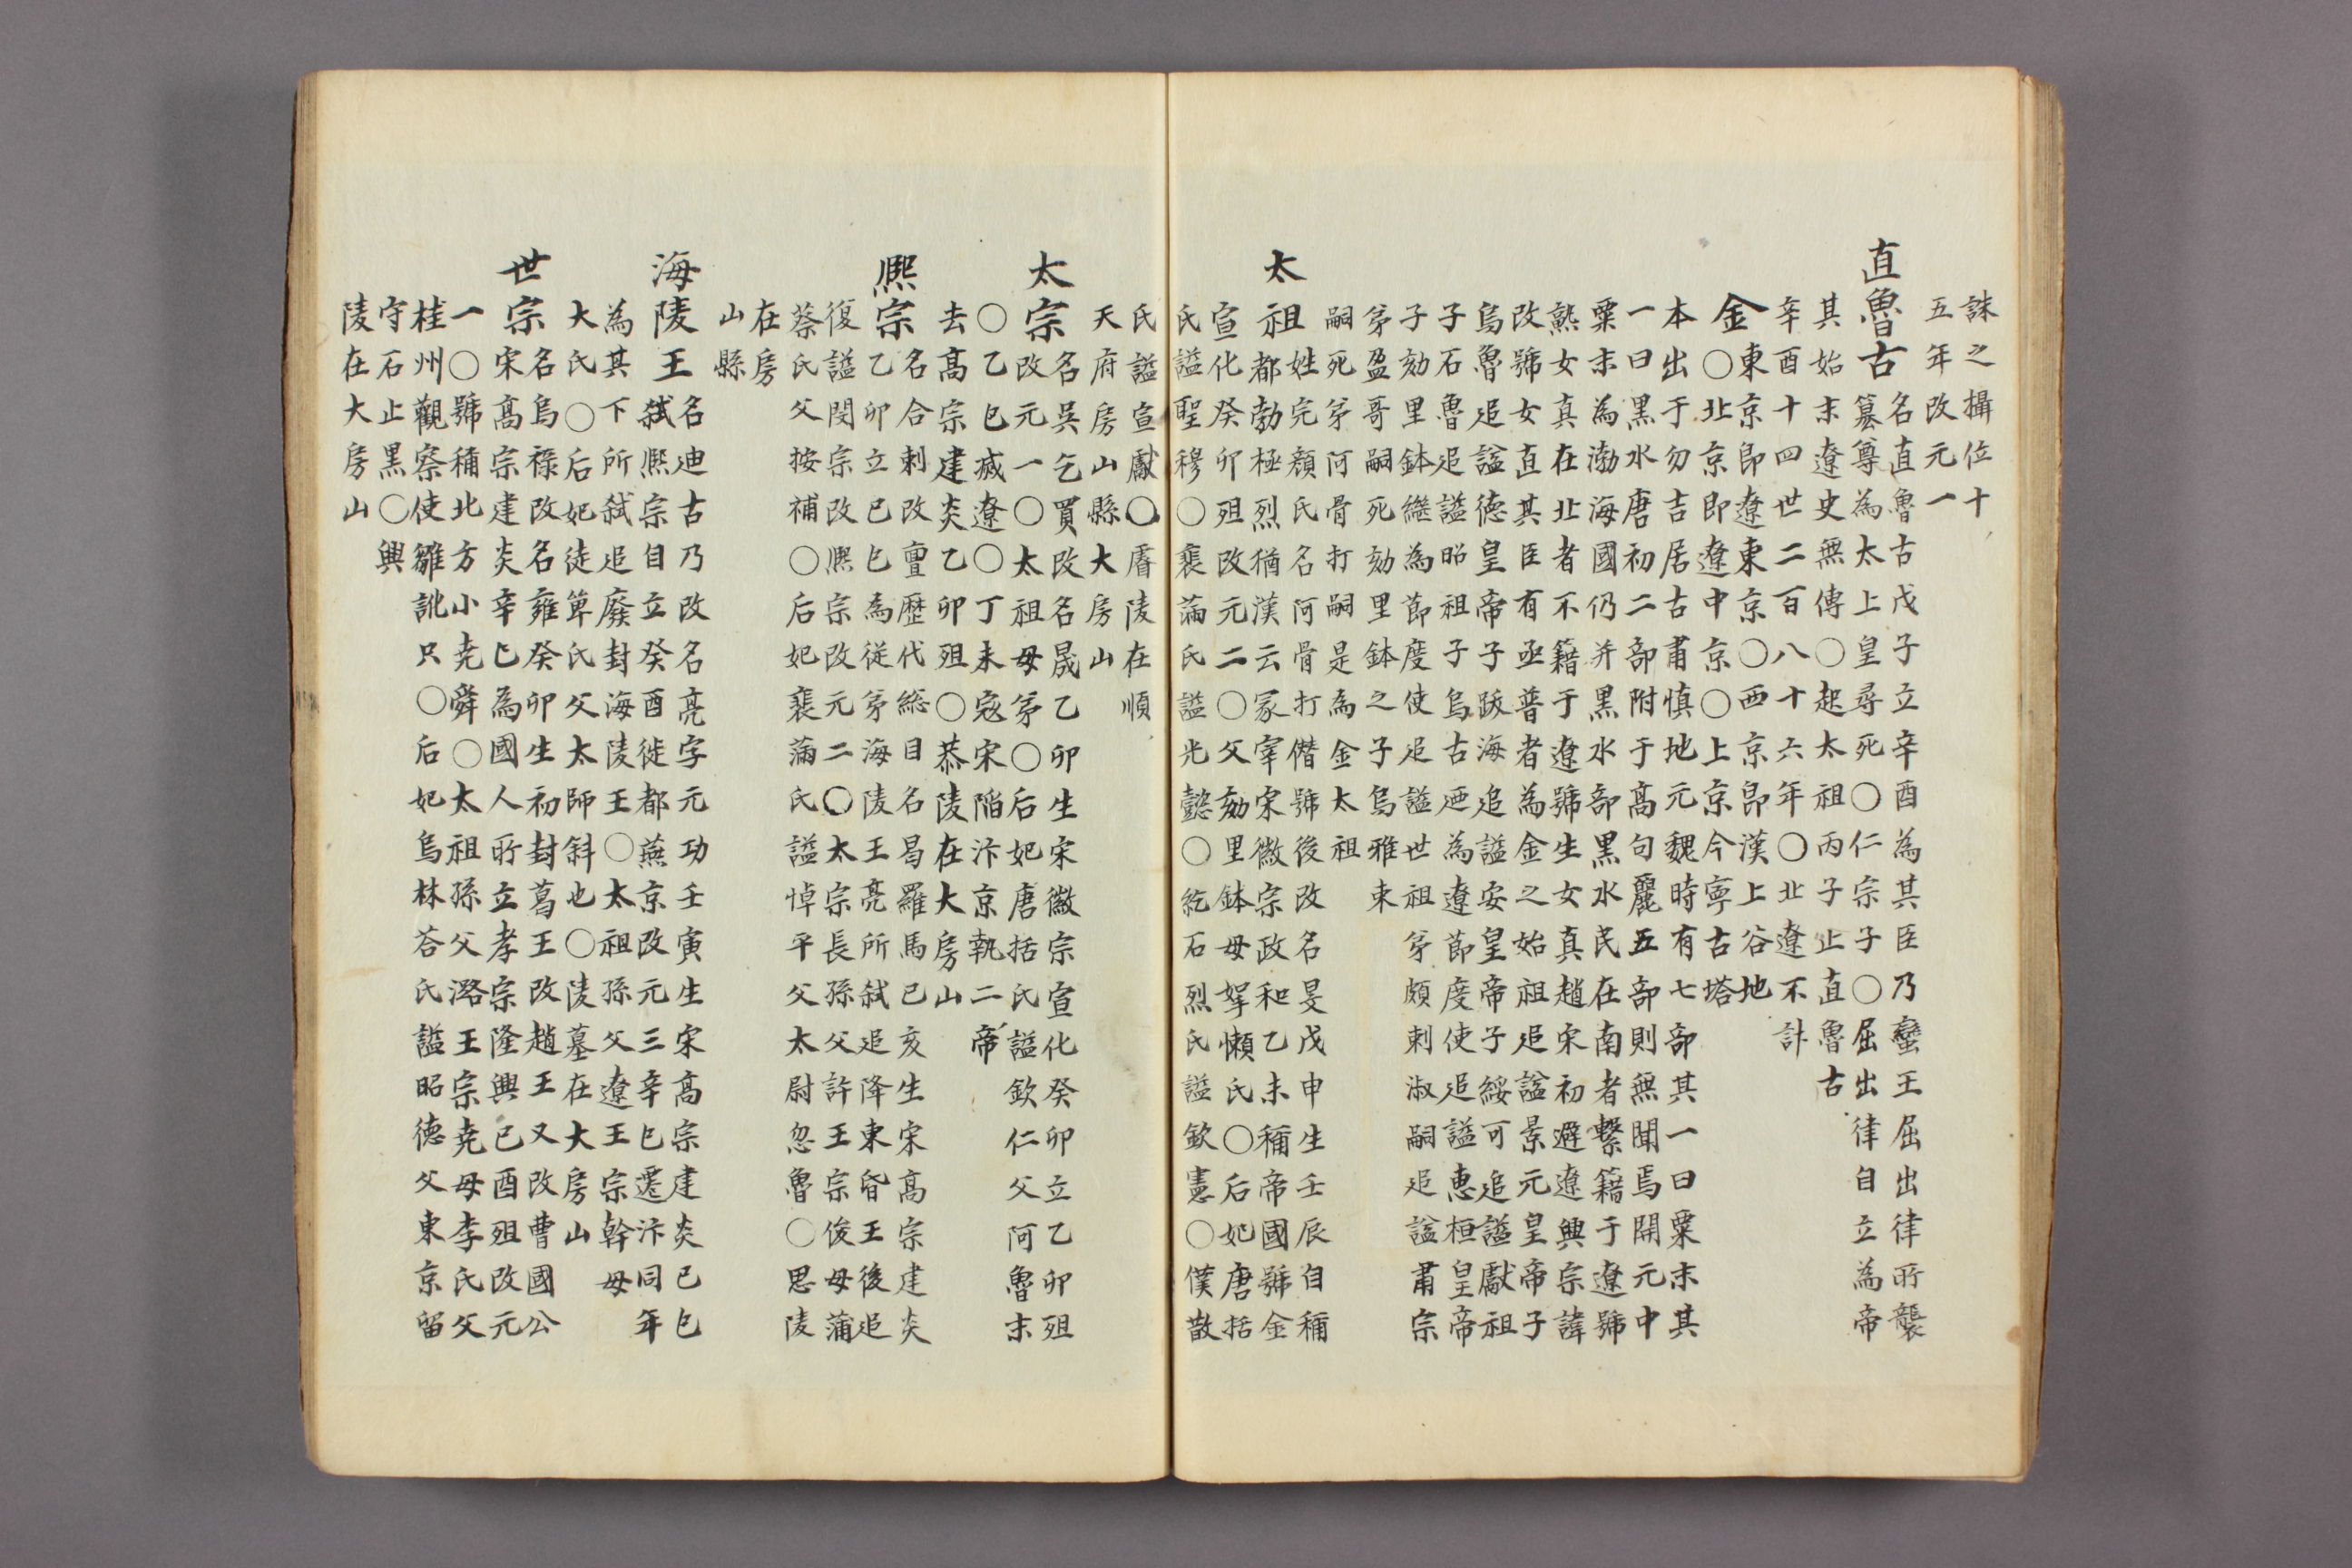 誅之攝位十
五年改元一
直魯古名直魯古戊子立辛酉為其臣乃蠻王屈出律所襲
篡尊為太上皇尋死〇仁宗子〇屈出律自立為帝
其始末遼史無傳〇起太祖丙子止直魯古
辛酉十四世二百八十六年〇北遼不計
金〇東京即遼東京〇西京即漢上谷地
〇北京即遼中京〇上京今寧古塔
本出于勿吉居古肅慎地元魏時有七部其一曰粟末其
一曰黑水唐初二部附于高句麗五部則無聞焉開元中
粟末為渤海國仍并黑水部黑水民在南者繫籍于遼號
熟女真在北者不籍于遼號生女真趙宋初避遼興宗諱
改號女直其臣有巫普者為金之始祖追謚景元皇帝子
烏魯追謚德皇帝子跋海追謚安皇帝子綏可追謚獻祖
子石魯追謚昭祖子烏古廼為遼節度使追謚惠桓皇帝
子劾里鉢繼為節度使追謚世祖弟頗剌淑嗣追謚肅宗
弟盈哥嗣死劾里鉢之子烏雅束
嗣死弟阿骨打嗣是為金太祖
太祖姓完顏氏名阿骨打僭號後改名旻戊申生壬辰自稱
都勃極烈猶漢云冢宰宋徽宗政和乙未稱帝國號金
宣化癸卯殂改元二〇父劾里鉢母拏懶氏〇后妃唐括
氏謚聖穆〇裴滿氏謚光懿〇紇石烈氏謚欽憲〇僕散
氏謚宣獻〇睿陵在順
天府房山縣大房山
太宗名吳乞買改名晟乙卯生宋徽宗宣化癸卯立乙卯殂
改元一〇太祖母弟〇后妃唐括氏謚欽仁父阿魯末
〇乙巳滅遼〇丁未寇宋陷汴京執二帝
去高宗建炎乙卯殂〇恭陵在大房山
熙宗名合剌改亶歷代總目名曷羅馬己亥生宋高宗建炎
乙卯立己巳為從弟海陵王亮所弒追降東昏王後追
復謚閔宗改熙宗改元二〇太宗長孫父許王宗俊母蒲
蔡氏父按補〇后妃裴滿氏謚悼平父太尉忽魯〇思陵
在房
山縣
海陵王名迪古乃改名亮字元功壬寅生宋高宗建炎己巳
弒熙宗自立癸酉徙都燕京改元三辛巳遷汴同年
為其下所弒追廢封海陵王〇太祖孫父遼王宗幹母
大氏〇后妃徒箄氏父太師斜也〇陵墓在大房山
世宗名烏祿改名雍癸卯生初封葛王改趙王又改曹國公
宋高宗建炎辛巳為國人所立孝宗隆興己酉殂改元
一〇號稱北方小堯舜〇太祖孫父潞王宗堯母李氏父
桂州觀察使雛訛只〇后妃烏林荅氏謚昭德父東京留
守石止黑〇興
陵在大房山